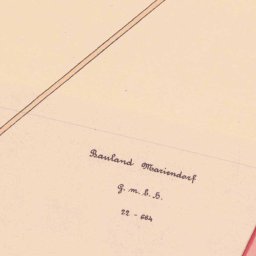 Bauland Mariendorf
G. m. b. H.
22 - 664